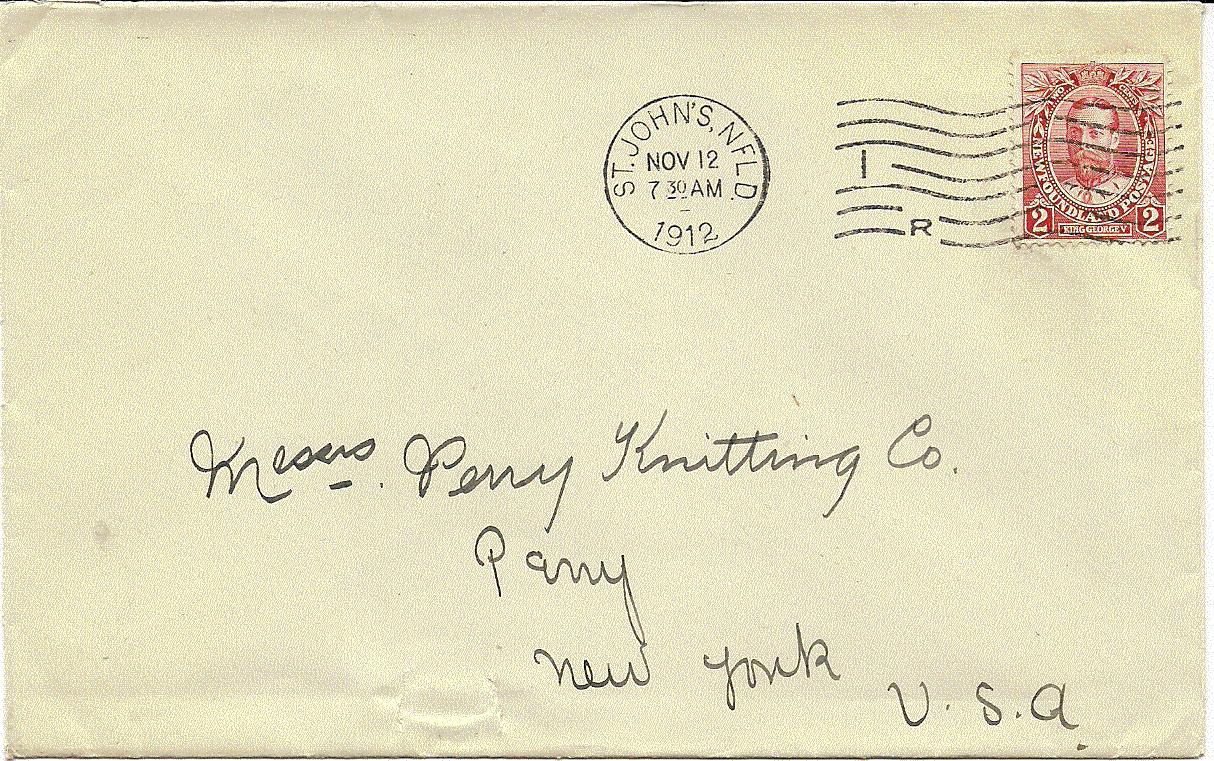 ST. JOHN'S, NFLD.
NOV 12
7 30 AM
1912
I
R
NEWFOUNDLAND POSTAGE
2 KING GEORGE V 2
Messrs. Perry Knitting Co.
Parry
New York
U. S. A